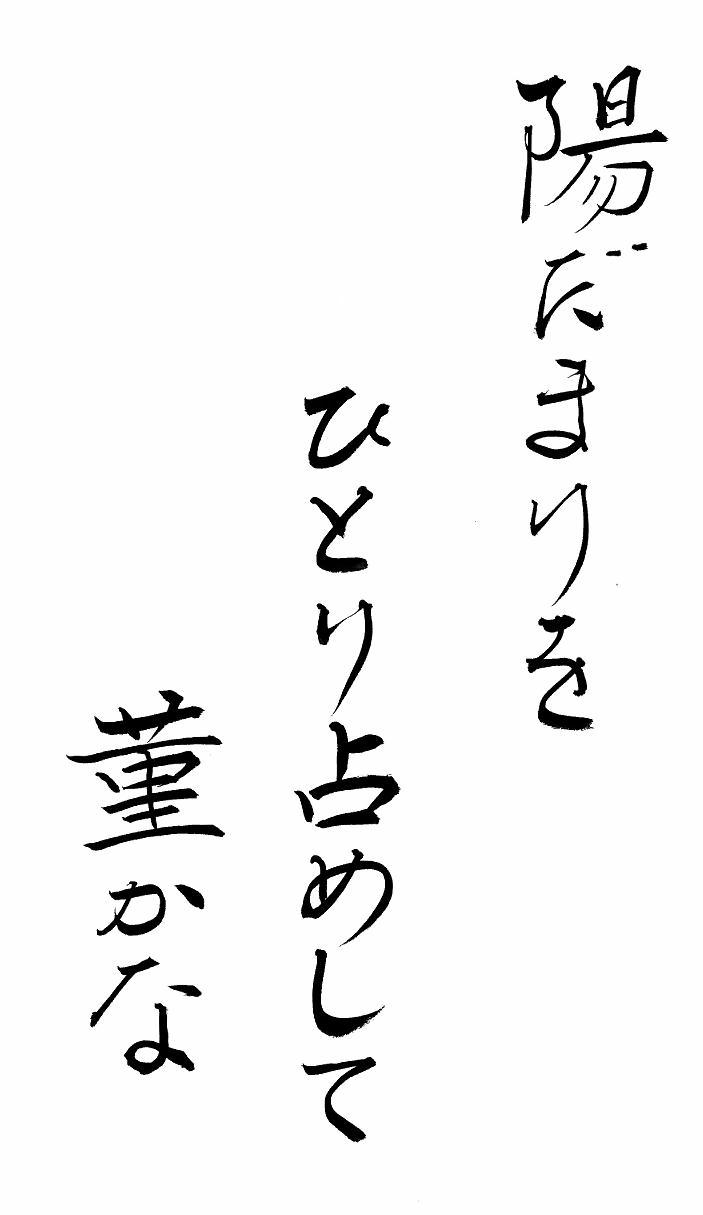 陽だまりを
ひとり占めして
菫かな